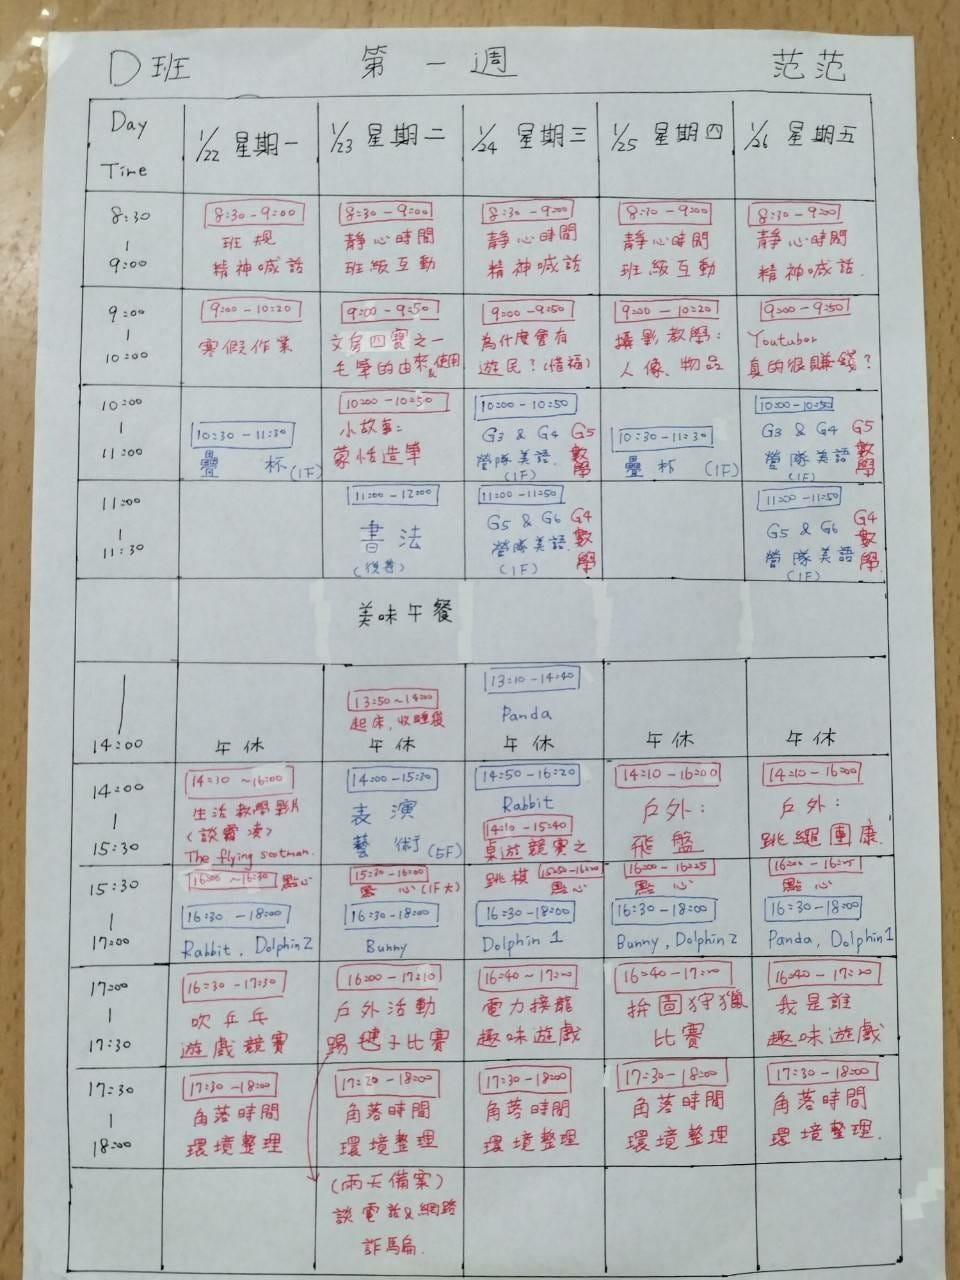 D班 第一週 范范
Day
Time
1/22 星期一
1/23 星期二
1/24 星期三
1/25 星期四
1/26 星期五
8:30
|
9:00
8:30-9:00
班規
精神喊話
8:30-9:00
靜心時間
班級互動
8:30-9:00
靜心時間
精神喊話
8:30-9:00
靜心時間
班級互動
8:30-9:00
靜心時間
精神喊話.
9:00
|
10:00
9:00-10:20
寒假作業
9:00-9:50
文房四寶之一
毛筆的由來&使用
9:00-9:50
為什麼會有
遊民?(惜福)
9:00-10:20
攝影教學:
人像、物品
9:00-9:50
Youtuber
真的很賺錢?
10:00
|
11:00
10:30-11:30
疊杯(1F)
10:00-10:50
小故事:
蒙恬造筆
10:00-10:50
G3 & G4 G5
營隊美語. 數學
(1F)
10:30-11:30
疊杯 (1F)
10:00-10:50
G3 & G4 G5
營隊美語 數學
(1F)
11:00
|
11:30
11:00-12:00
書法
(後巷)
11:00-11:50
G5 & G6 G4
營隊美語. 數學
(1F)
11:00-11:50
G5 & G6 G4
營隊美語 數學
(1F)
美味午餐
|
14:00
午休
13:50~14:00
起床,收睡袋
午休
13:10-14:40
Panda
午休
午休
午休
14:00
|
15:30
14:10~16:00
生活教學影片
(談霸凌)
The flying scotman.
14:00-15:30
表演
藝術(5F)
14:50-16:20
Rabbit
14:10-15:40
桌遊競賽之
跳棋
14:10-16:00
戶外:
飛盤
14:10-16:00
戶外:
跳繩團康
15:30
|
17:00
16:00~16:30 點心
16:30-18:00
Rabbit, Dolphin 2
15:30-16:00
點心(1F大)
16:30-18:00
Bunny
15:50-16:00
點心
16:30-18:00
Dolphin 1
16:00-16:25
點心
16:30-18:00
Bunny, Dolphin 2
16:00-16:25
點心
16:30-18:00
Panda, Dolphin 1
17:00
|
17:30
16:30-17:30
吹乒乓
遊戲競賽
16:00-17:10
戶外活動
踢毽子比賽
16:40~17:20
電力接龍
趣味遊戲
16:40-17:20
拼圖狩獵
比賽
16:40-17:20
我是誰
趣味遊戲
17:30
|
18:00
17:30-18:00
角落時間
環境整理
17:20-18:00
角落時間
環境整理
17:30-18:00
角落時間
環境整理
17:30-18:00
角落時間
環境整理
17:30-18:00
角落時間
環境整理.
(雨天備案)
談電話&網路
詐騙.